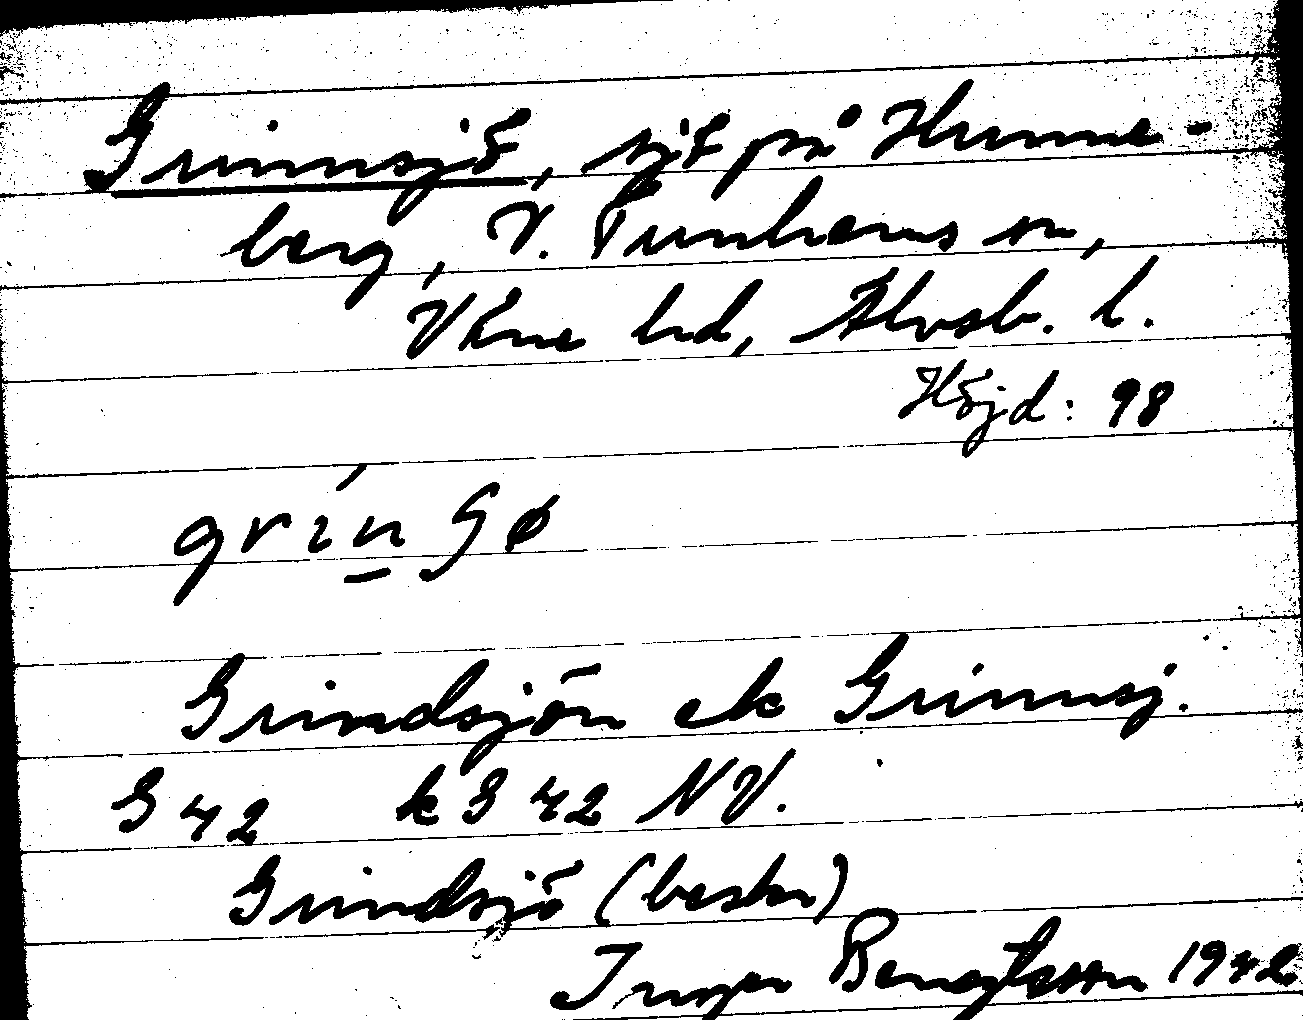 Grinnsjö, sjö på Hunne-
berg, V. Tunhems sn,
Väne hd, Älvsb. l.
Höjd: 98
grínʃø
Grindsjön ek Grinnsj.
G 42 k G 42 NV.
Grindsjö (beskr)
Inger Bengtsson 1942